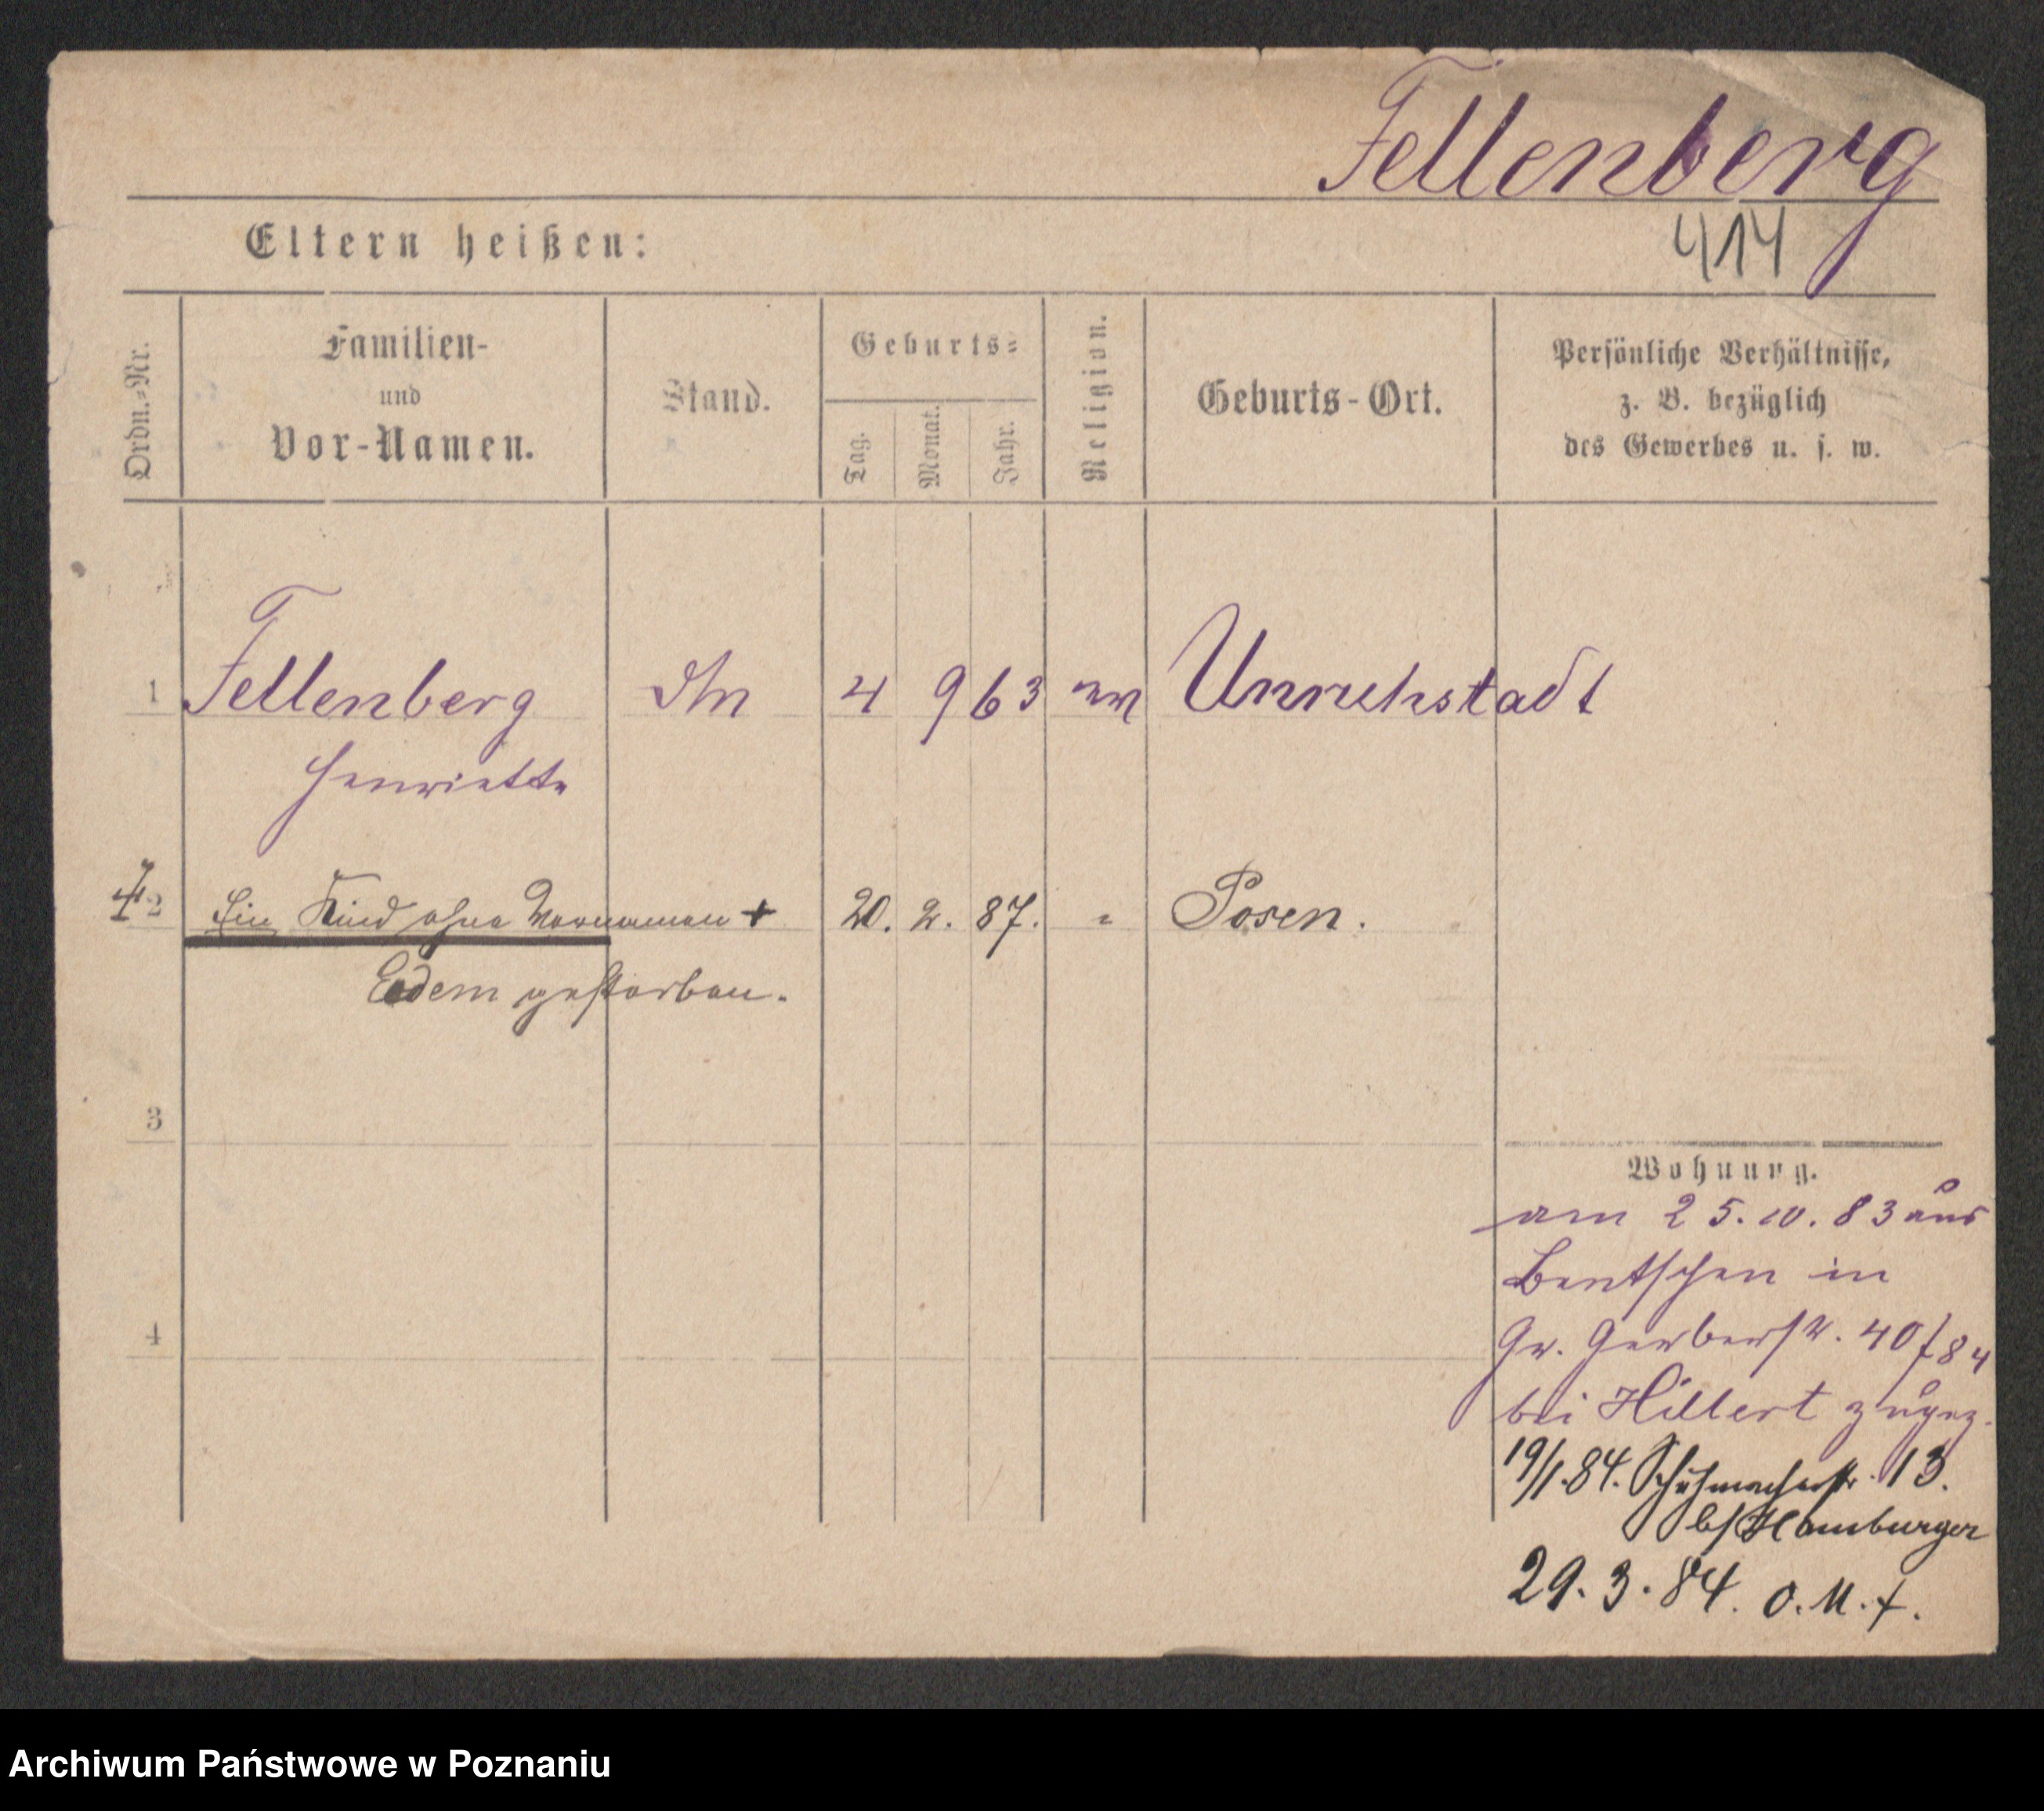 Fellenberg
Eltern heißen:
414
Ordn.=Nr.
Familien-
und
Vor-Namen.
Stand.
Geburts=
Tag.
Monat.
Jahr.
Religion.
Geburts-Ort.
Persönliche Verhältnisse,
z. B. bezüglich
des Gewerbes u. s. w.
1 Fellenberg 4 9 63 Unruhstadt
Henriette
2 Ein Kind ohne Vornamen + 20. 2. 87. " Posen.
Eodem gestorben.
3
Wohnung.
am 25.10.83 aus
Bentschen in
4
Gr. Gerberstr. 40/84
bei Hillert zugez.
19/1.84. Schuhmacherstr. 13.
b/ Hamburger
29.3.84. o.M.f.
Archiwum Państwowe w Poznaniu